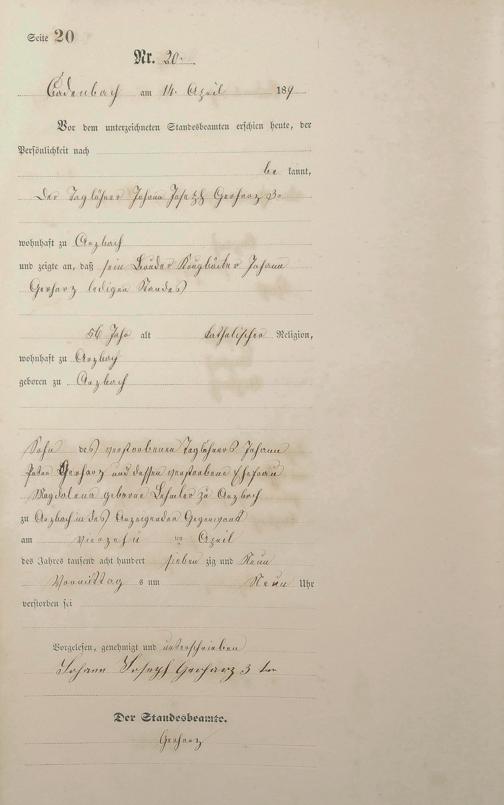 Seite 20
Nr. 20.
Cadenbach am 14. April 189
Vor dem unterzeichneten Standesbeamten erschien heute, der
Persönlichkeit nach
be kannt,
Der Taglöhner Johann Joseph Gerharz 3r
wohnhaft zu Arzbach
und zeigte an, daß sein Bruder Krugbäcker Johann
Gerharz ledigen Standes
56 Jahr alt katholischer Religion,
wohnhaft zu Arzbach
geboren zu Arzbach
Sohn des verstorbenen Taglöhners Johann
Peter Gerharz und dessen verstorbene Ehefrau
Magdalena geborne zu Arzbach
zu Arzbach in des Anzeigenden Gegenwart
am vierzehn ten April
des Jahres tausend acht hundert sieben zig und Neun
Vormittag s um Neun Uhr
verstorben sei
Vorgelesen, genehmigt und unterschrieben
Johann Joseph Gerharz 3 ter
Der Standesbeamte.
Gerharz